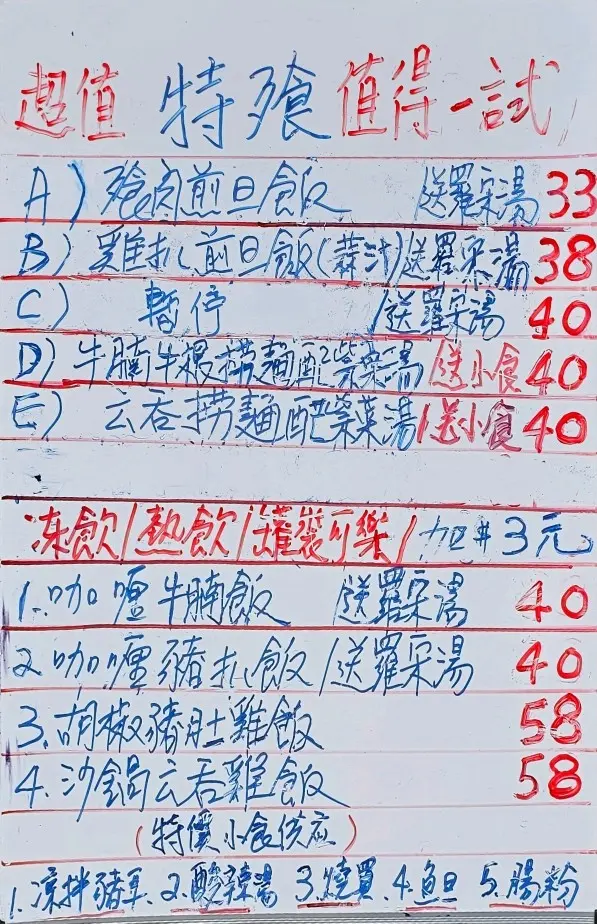 超值 特飡 值得一試
A) 飡肉煎旦飯 送羅宋湯 33
B) 雞扒煎旦飯(蒜汁)送羅宋湯 38
C) 暫停 /送羅宋湯 40
D) 牛腩牛根撈麵配紫菜湯 送小食 40
E) 云吞撈麵配紫菜湯/送小食 40
冻飲/熱飲/罐裝可樂/加#3元
1.咖喱牛腩飯 送羅宋湯 40
2咖喱豬扒飯/送羅宋湯 40
3.胡椒豬肚雞飯 58
4.沙鍋云吞雞飯 58
(特價小食供应)
1.凉拌豬耳.2.酸辣湯 3.燒買.4.魚旦 5.腸粉